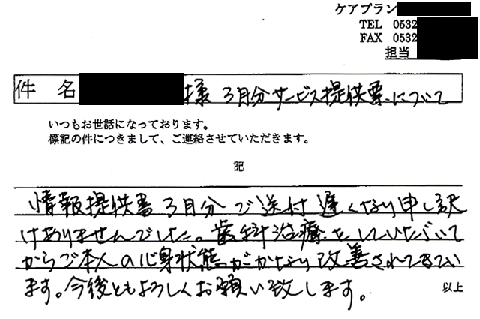 ケアプラン
TEL 0532
FAX 0532
担当
件 名 様 3月分サービス提供票について
いつもお世話になっております。
標記の件につきまして、ご連絡させていただきます。
記
情報提供書3月分 で送付 遅くなり申し訳
けありませんでした。歯科治療をしていただいて
からご本人の心身状態がかなり改善されてきてい
ます。今後ともよろしくお願い致します。 以上